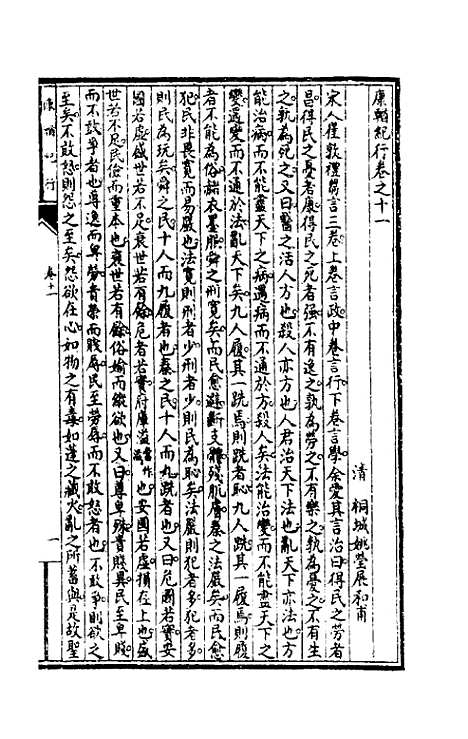 康輶紀行卷之十一
清 桐城姚瑩展和甫
宋人崔敦禮芻言三卷上卷言政中卷言行下卷言學余愛其言治曰得民之勞者
昌得民之憂者康得民之死者强不有逸之孰為勞之不有樂之孰為憂之不有生
之孰為死之又曰醫之活人方也殺人亦方也人君治天下法也亂天下亦法也方
能治病而不能盡天下之病遇病而不通於方殺人矣法能治變而不能盡天下之
變遇變而不通於法亂天下矣九人履其一跣焉則跣者恥九人跣其一履焉則履
者不能為俗赭衣墨服舜之刑寬矣而民愈避斷支體殘肌膚秦之法嚴矣而民愈
犯民非畏寬而易嚴也法寬則刑者少刑者少則民為恥矣法嚴則犯者多犯者多
則民為玩矣舜之民十人而九履者也秦之民十人而九跣者也又曰危國若實安
國若虛盛世若不足衰世若有餘危者若實府庫溢當作也安國若虛損在上也盛
世若不足民儉而重本也衰世若有餘俗媮而縱欲也又曰尊卑殊貴賤異民至卑賤
而不敢爭者也尊逸而卑勞貴榮而賤辱民至勞辱而不敢怨者也不敢爭則欲之
至矣不敢怨則怨之至矣怨欲在心如物之有毒如蓬之藏火亂之所蓄與是故聖
康輶紀行
卷十一
一